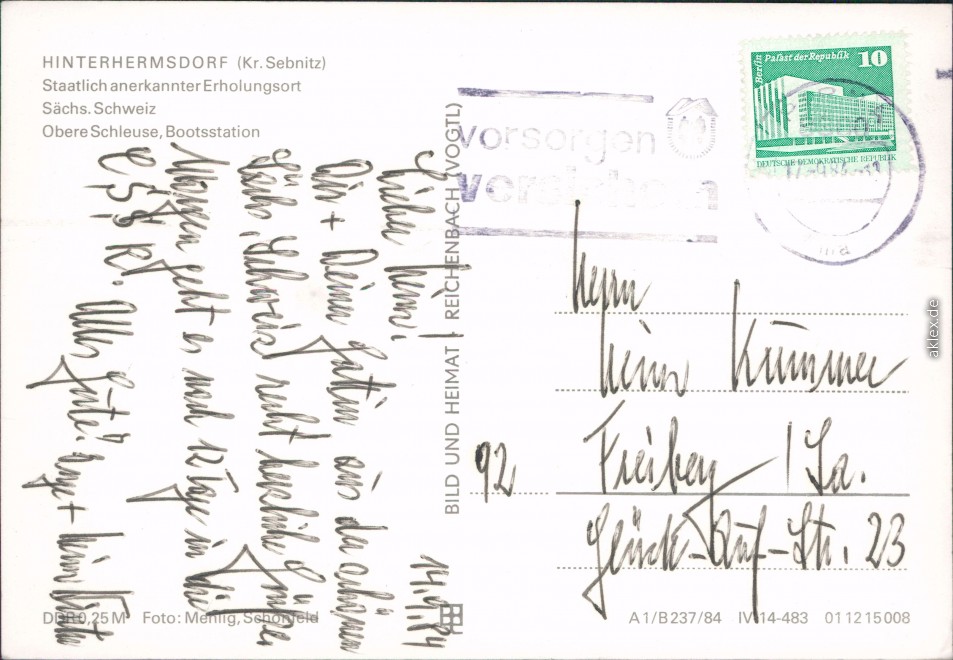 HINTERHERMSDORF (Kr. Sebnitz)
Staatlich anerkannter Erholungsort
Sächs. Schweiz
Obere Schleuse, Bootsstation
vorsorgen
versichern
Berlin Palast der Republik 10
DEUTSCHE DEMOKRATISCHE REPUBLIK
14.9.84
Lieber Heinz!
Dir + Deiner Gattin aus der schönen
Sächs. Schweiz recht herzliche Grüße
Morgen geht es noch 12 Tage in die
Alles Gute!
BILD UND HEIMAT · REICHENBACH (VOGTL)
Herrn
Heinz Kummer
92 Freiberg / Sa.
Glück-Auf-Str. 23
DDR 0,25 M Foto: Mehlig, Schönfeld
A 1/B 237/84 IV-14-483 01 12 15 008
aklex.de